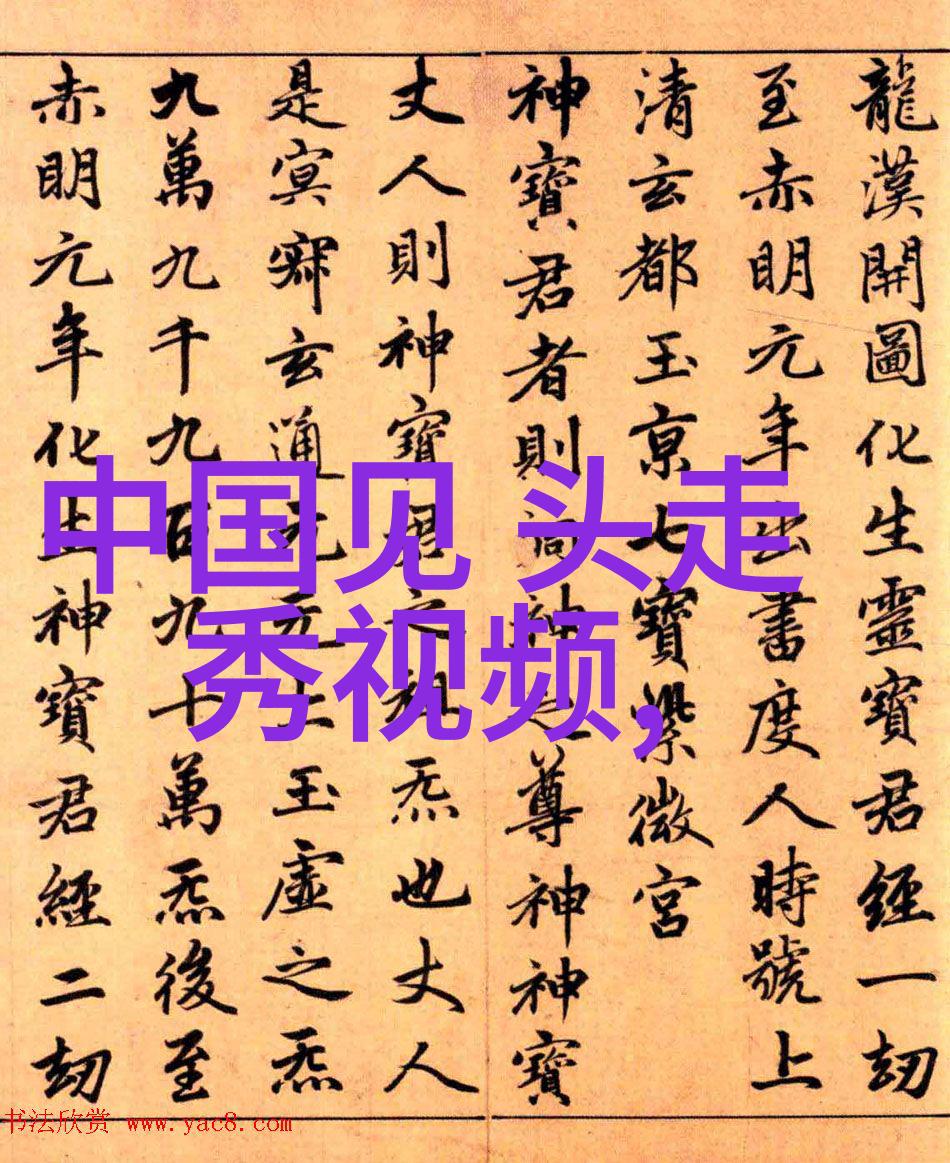 龍漢開圖化生靈寶君經一劫
至赤明元年出書度人時號上
清玄都玉京七寶紫微宮
神寶君者則洞神之尊神神寶
丈人則神寶君之祖炁也丈人
是冥寂玄通元无上玉虛之炁
九萬九千九百九十萬炁後至
赤明元年化生神寶君經二劫
中国见 头走
秀视频,
书法欣赏 www.yac8.com